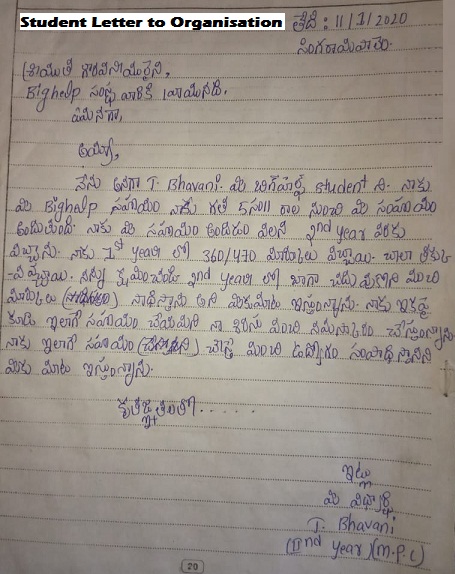 Student Letter to Organisation
తేది : 11/1/2020
సింగరాయపాలెం.
శ్రీయుత గౌరవనీయులైన,
Bighelp సంస్థ వారికి వ్రాయునది.
ఏమనగా,
అయ్యా,
నేను అనగా T. Bhavani. మీ బిగ్‌హెల్ప్ student ని. నాకు
మీ Bighelp సహాయం నాకు గత 5సం॥ రాల నుంచి మీ సహాయం
అందుచున్నది. నాకు మీ సహాయం అందడం వలన 2nd year వరకు
వచ్చాను. నాకు 1st year లో 360/470 మార్కులు వచ్చాయి. చాలా తక్కువ
వచ్చాయి. నన్ను క్షమించండి 2nd year లో బాగా చదువుకొని మంచి
మార్కులు సాధిస్తాను అని మీకుమాట ఇస్తున్నాను. నాకు ఇకపై
కూడా ఇలాగే సహాయం చేయమని నా శిరసు వంచి నమస్కారం చేస్తున్నాను.
నాకు ఇలాగే సహాయం చేస్తే మంచి ఉద్యోగం సంపాదిస్తానని
మీకు మాట ఇస్తున్నాను.
కృతజ్ఞతలతో . . . . . .
ఇట్లు
మీ విద్యార్థి
T. Bhavani
(IInd year) (M.P.C)
20